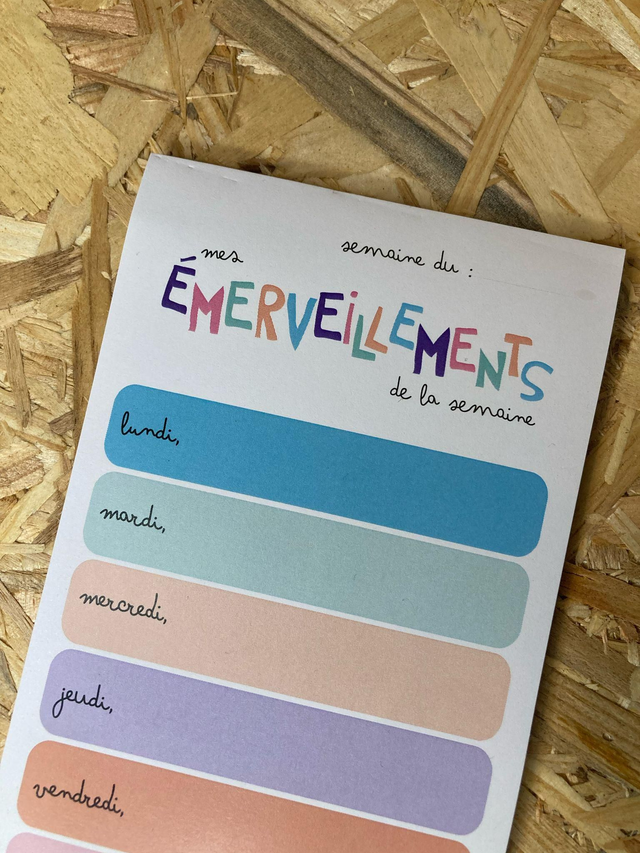 mes
semaine du :
ÉMERVEiLLEMENTS
de la semaine
lundi,
mardi,
mercredi,
jeudi,
vendredi,